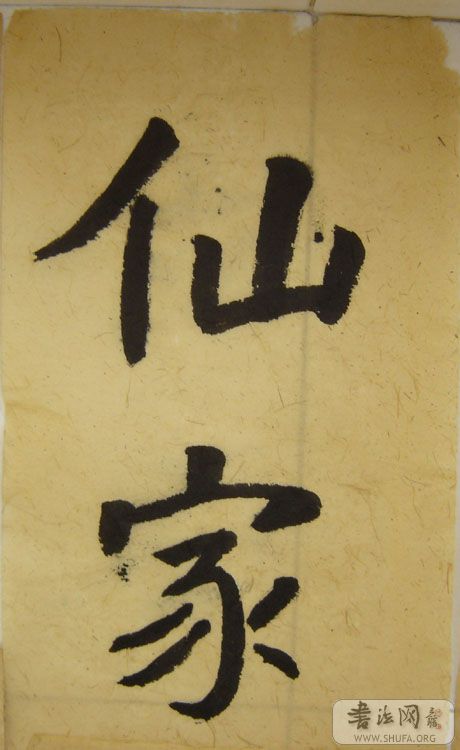 仙家
书法网
WWW.SHUFA.ORG